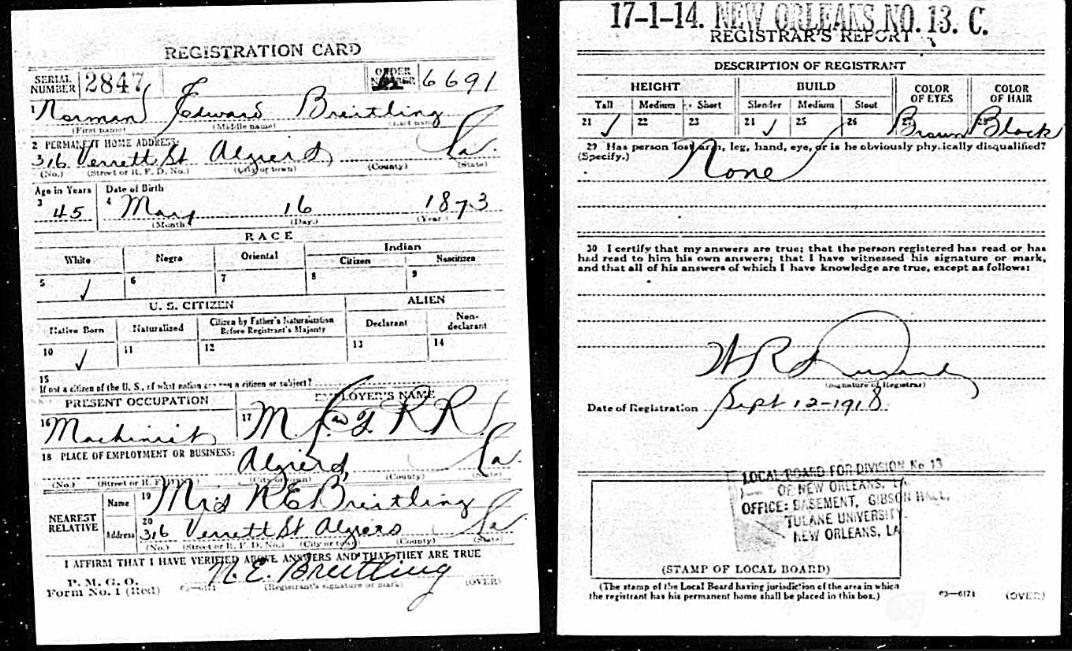 REGISTRATION CARD
SERIAL NUMBER 2847 ORDER NUMBER 6691
1 Norman Edward Breitling
(First name) (Middle name) (Last name)
2 PERMANENT HOME ADDRESS:
316 Verrett St Algiers La.
(No.) (Street or R. F. D. No.) (City or town) (County) (State)
Age in Years Date of Birth
3 45 4 May 16 1873
(Month) (Day) (Year)
RACE
White Negro Oriental Indian
Citizen Noncitizen
5 ✓ 6 7 8 9
U. S. CITIZEN ALIEN
Native Born Naturalized Citizen by Father's Naturalization Before Registrant's Majority Declarant Non-declarant
10 ✓ 11 12 13 14
15
If not a citizen of the U. S., of what nation are you a citizen or subject?
PRESENT OCCUPATION EMPLOYER'S NAME
16 Machinist 17 M R R
18 PLACE OF EMPLOYMENT OR BUSINESS:
Algiers La.
(No.) (Street or R. F. D. No.) (City or town) (County) (State)
NEAREST RELATIVE Name 19 Mrs N E Breitling
Address 20 316 Verrett St Algiers La
(No.) (Street or R. F. D. No.) (City or town) (County) (State)
I AFFIRM THAT I HAVE VERIFIED ABOVE ANSWERS AND THAT THEY ARE TRUE
P. M. G. O.
Form No. 1 (Red) N. E. Breitling
(Registrant's signature or mark) (OVER)
17-1-14. NEW ORLEANS NO. 13. C.
REGISTRAR'S REPORT
DESCRIPTION OF REGISTRANT
HEIGHT BUILD COLOR OF EYES COLOR OF HAIR
Tall Medium Short Slender Medium Stout
21 ✓ 22 23 24 ✓ 25 26 Brown Black
29 Has person lost arm, leg, hand, eye, or is he obviously physically disqualified?
(Specify.) None
30 I certify that my answers are true; that the person registered has read or has
had read to him his own answers; that I have witnessed his signature or mark,
and that all of his answers of which I have knowledge are true, except as follows:
(Signature of Registrar)
Date of Registration Sept 12-1918
LOCAL BOARD FOR DIVISION No. 13
OF NEW ORLEANS, LA
OFFICE: BASEMENT, GIBSON HALL,
TULANE UNIVERSITY.
NEW ORLEANS, LA
(STAMP OF LOCAL BOARD)
(The stamp of the Local Board having jurisdiction of the area in which
the registrant has his permanent home shall be placed in this box.)
03—6171 (OVER)